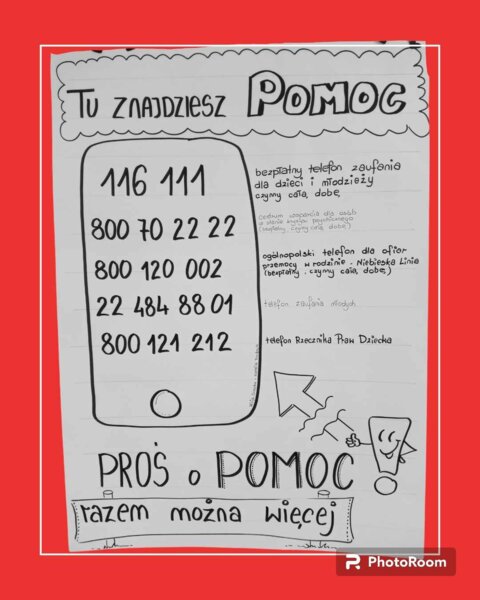 TU ZNAJDZIESZ POMOC
116 111
bezpłatny telefon zaufania
dla dzieci i młodzieży
czynny całą dobę
800 70 22 22
centrum wsparcia dla osób
w stanie kryzysu psychicznego
(bezpłatny, czynny całą dobę)
800 120 002
ogólnopolski telefon dla ofiar
przemocy w rodzinie - Niebieska Linia
(bezpłatny, czynny całą dobę)
22 484 88 01
telefon zaufania młodych
800 121 212
telefon Rzecznika Praw Dziecka
PROŚ o POMOC
razem można więcej
PhotoRoom